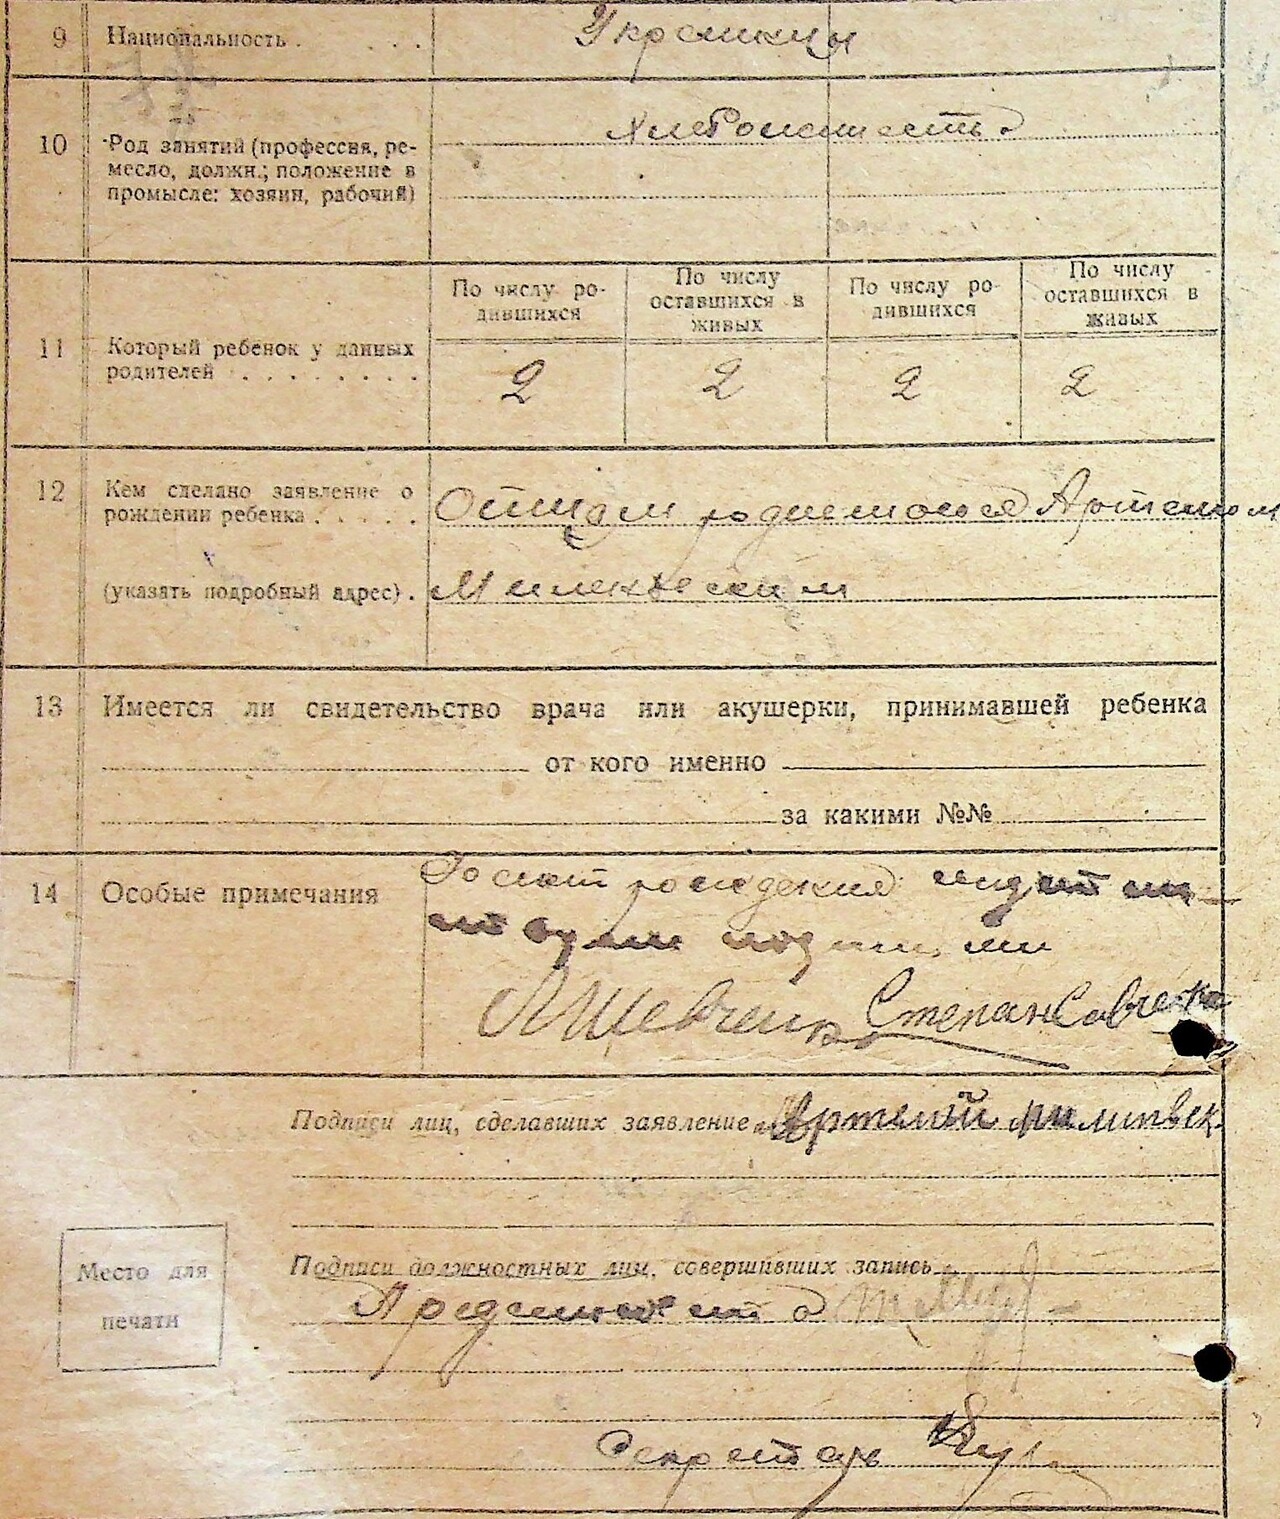 9 Национальность . . . . Украинцы
10 Род занятий (профессия, ре-
месло, должн.; положение в
промысле: хозяин, рабочий)
Хлебопашество
По числу ро-
дившихся
По числу
оставшихся в
живых
По числу ро-
дившихся
По числу
оставшихся в
живых
11 Который ребенок у данных
родителей . . . . . . . .
2 2 2 2
12 Кем сделано заявление о
рождении ребенка . . . . .
Отцом родившегося Артемом
(указать подробный адрес) .
13 Имеется ли свидетельство врача или акушерки, принимавшей ребенка
от кого именно
за какими №№
14 Особые примечания
Факт рождения
подписями
Шевченко Степан Савченко
Подписи лиц, сделавших заявление Артемий
Место для
печати
Подписи должностных лиц, совершивших запись
Председатель
Секретарь